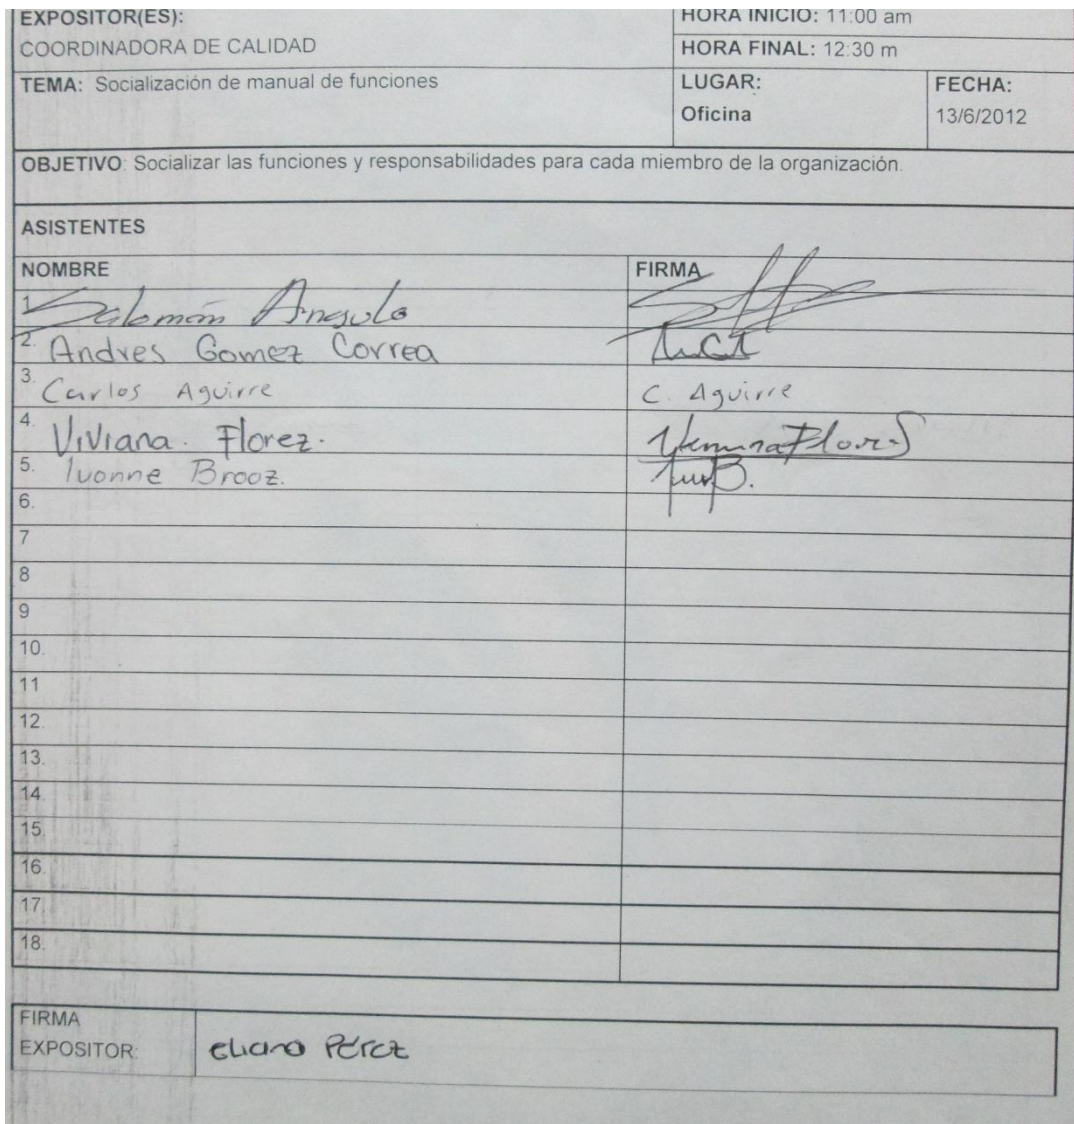 EXPOSITOR(ES):
COORDINADORA DE CALIDAD
HORA INICIO: 11:00 am
HORA FINAL: 12:30 m
TEMA: Socialización de manual de funciones
LUGAR:
Oficina
FECHA:
13/6/2012
OBJETIVO: Socializar las funciones y responsabilidades para cada miembro de la organización.
ASISTENTES
NOMBRE FIRMA
1 Salomón Angulo
2. Andres Gomez Correa
3. Carlos Aguirre C. Aguirre
4. Viviana. Florez.
5. Ivonne Brooz.
6.
7
8
9
10.
11
12.
13.
14.
15.
16.
17
18.
FIRMA
EXPOSITOR: Eliana Pérez